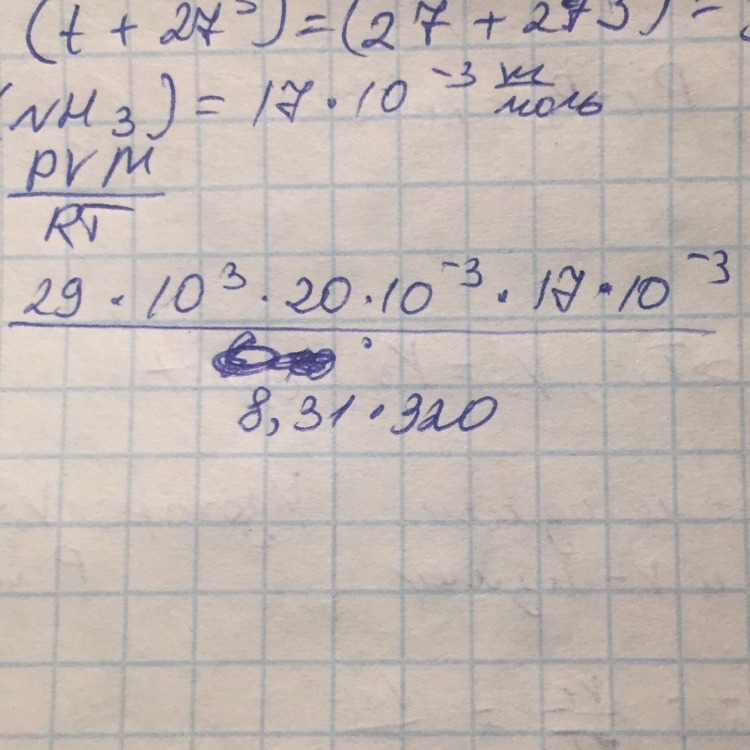 (t + 273) = (27 + 273) =
(NH3) = 17 · 10⁻³ кг/моль
PVM
RT
29 · 10³ · 20 · 10⁻³ · 17 · 10⁻³
8,31 · 320